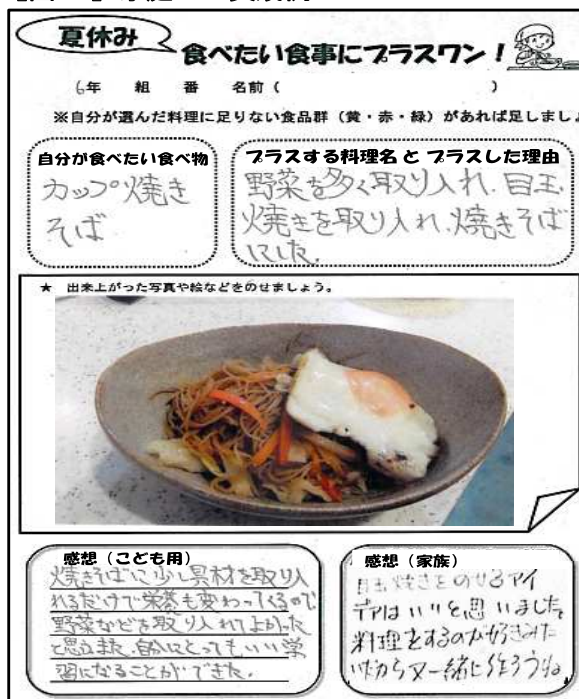 夏休み
食べたい食事にプラスワン！
6年 組 番 名前（ ）
※自分が選んだ料理に足りない食品群（黄・赤・緑）があれば足しまし
自分が食べたい食べ物
カップ焼き
そば
プラスする料理名 と プラスした理由
野菜を多く取り入れ、目玉
焼きを取り入れ、焼きそば
にした。
★ 出来上がった写真や絵などをのせましょう。
感想（こども用）
焼きそばに少し具材を取り入
れるだけで栄養も変わってくるので
野菜などを取り入れてよかった
と思います。また、自分にとってもいい学
習になることができた。
感想（家族）
目玉焼きをのせるアイ
デアはいいと思いました。
料理をするのが好きみた
いだから又一緒に作ろうね